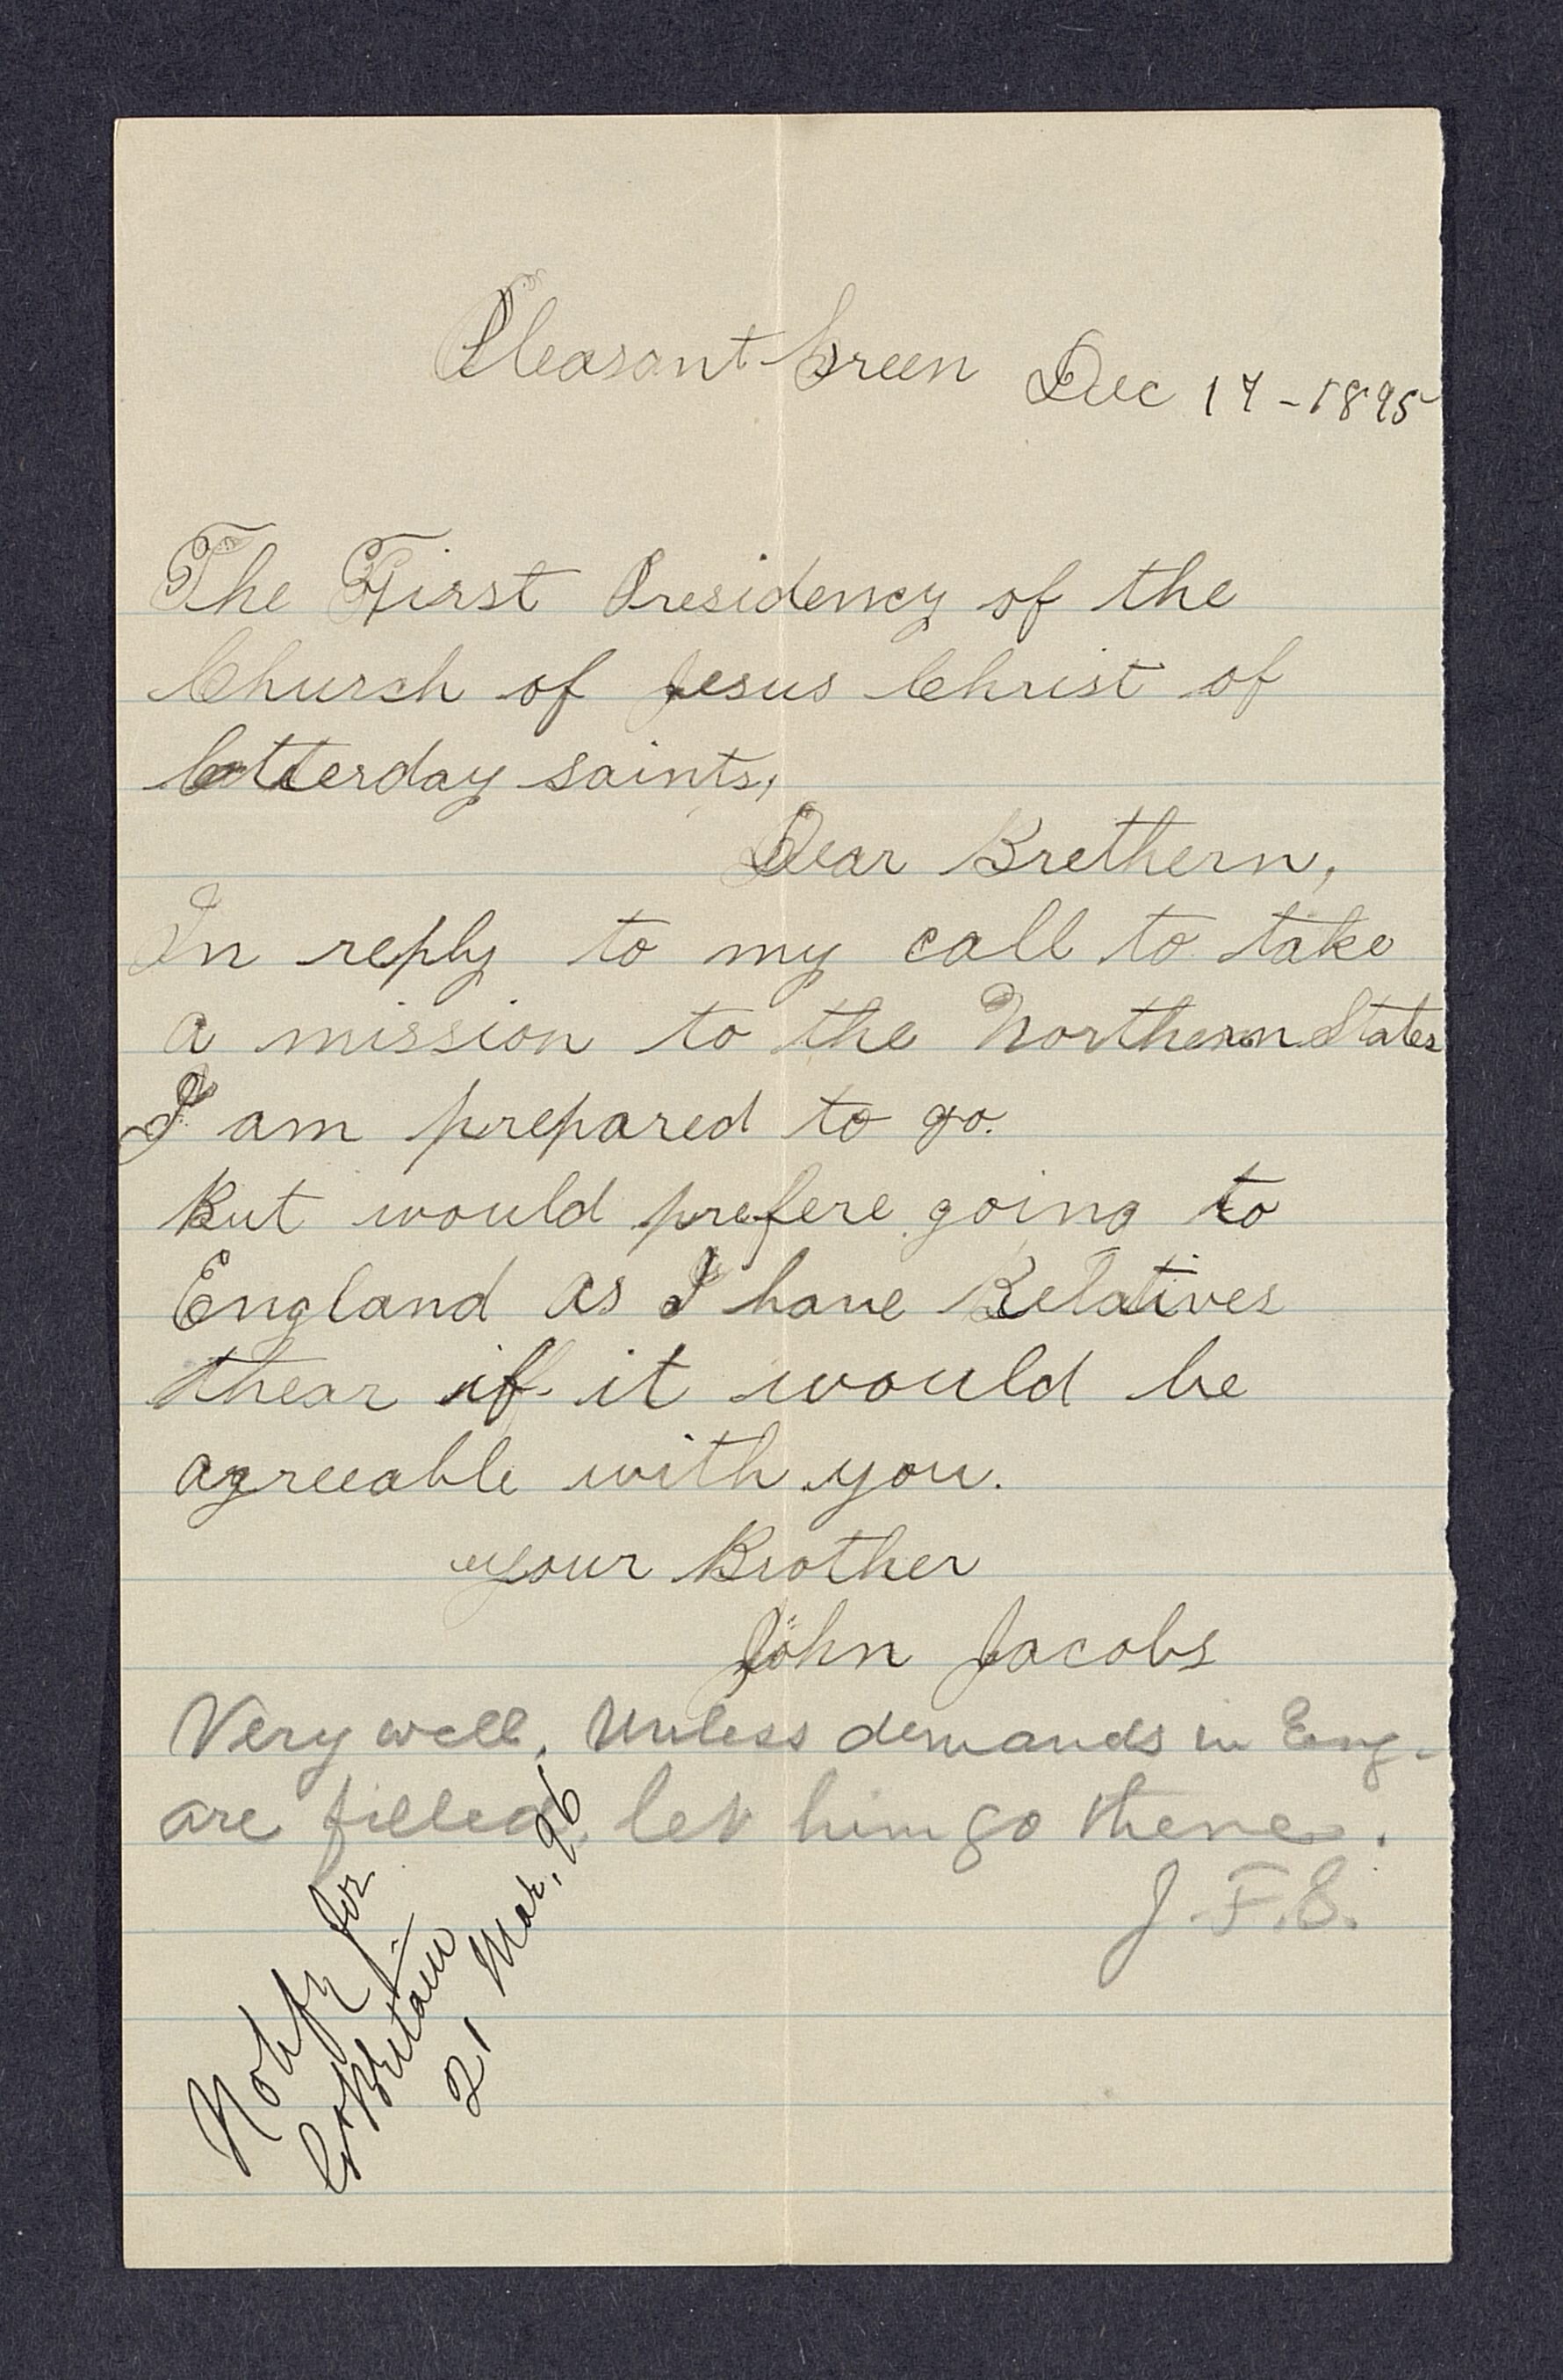 Pleasant Green Dec 17-1895
The First Presidency of the
Church of Jesus Christ of
latterday saints,
Dear Brethern,
In reply to my call to take
a mission to the Northern States
I am prepared to go.
But would prefere going to
England as I have Relatives
thear if it would be
agreeable with you.
your Brother
John Jacobs
Very well. Unless demands in Eng-
are filled, let him go there.
J. F. S.
Notify for
Gt Britain
21 Mar. 96